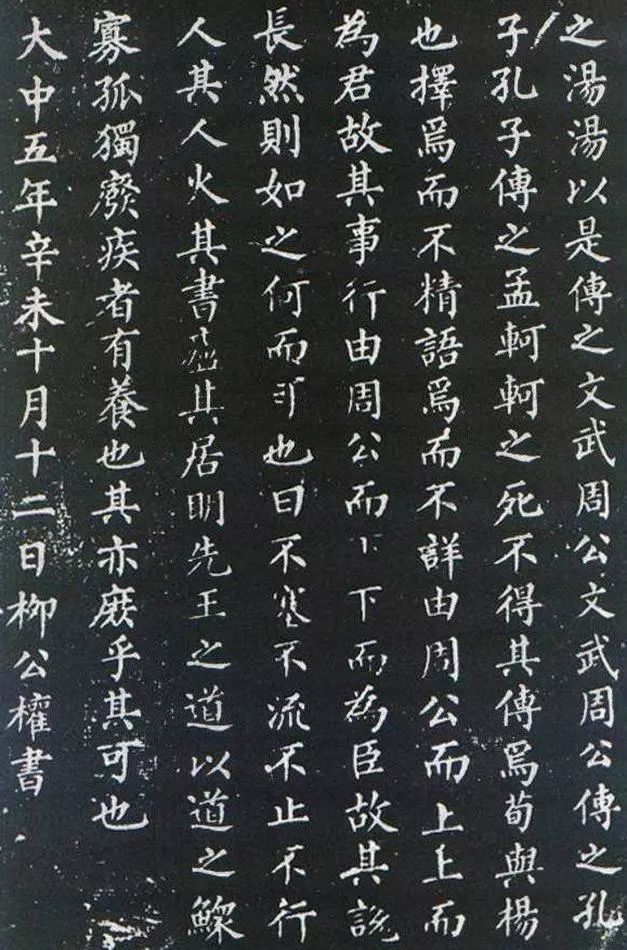 之湯湯以是傳之文武周公文武周公傳之孔
子孔子傳之孟軻軻之死不得其傳焉荀與楊
也擇焉而不精語焉而不詳由周公而上上而
為君故其事行由周公而下下而為臣故其說
長然則如之何而可也曰不塞不流不止不行
人其人火其書廬其居明先王之道以道之鰥
寡孤獨廢疾者有養也其亦庶乎其可也
大中五年辛未十月十二日柳公權書